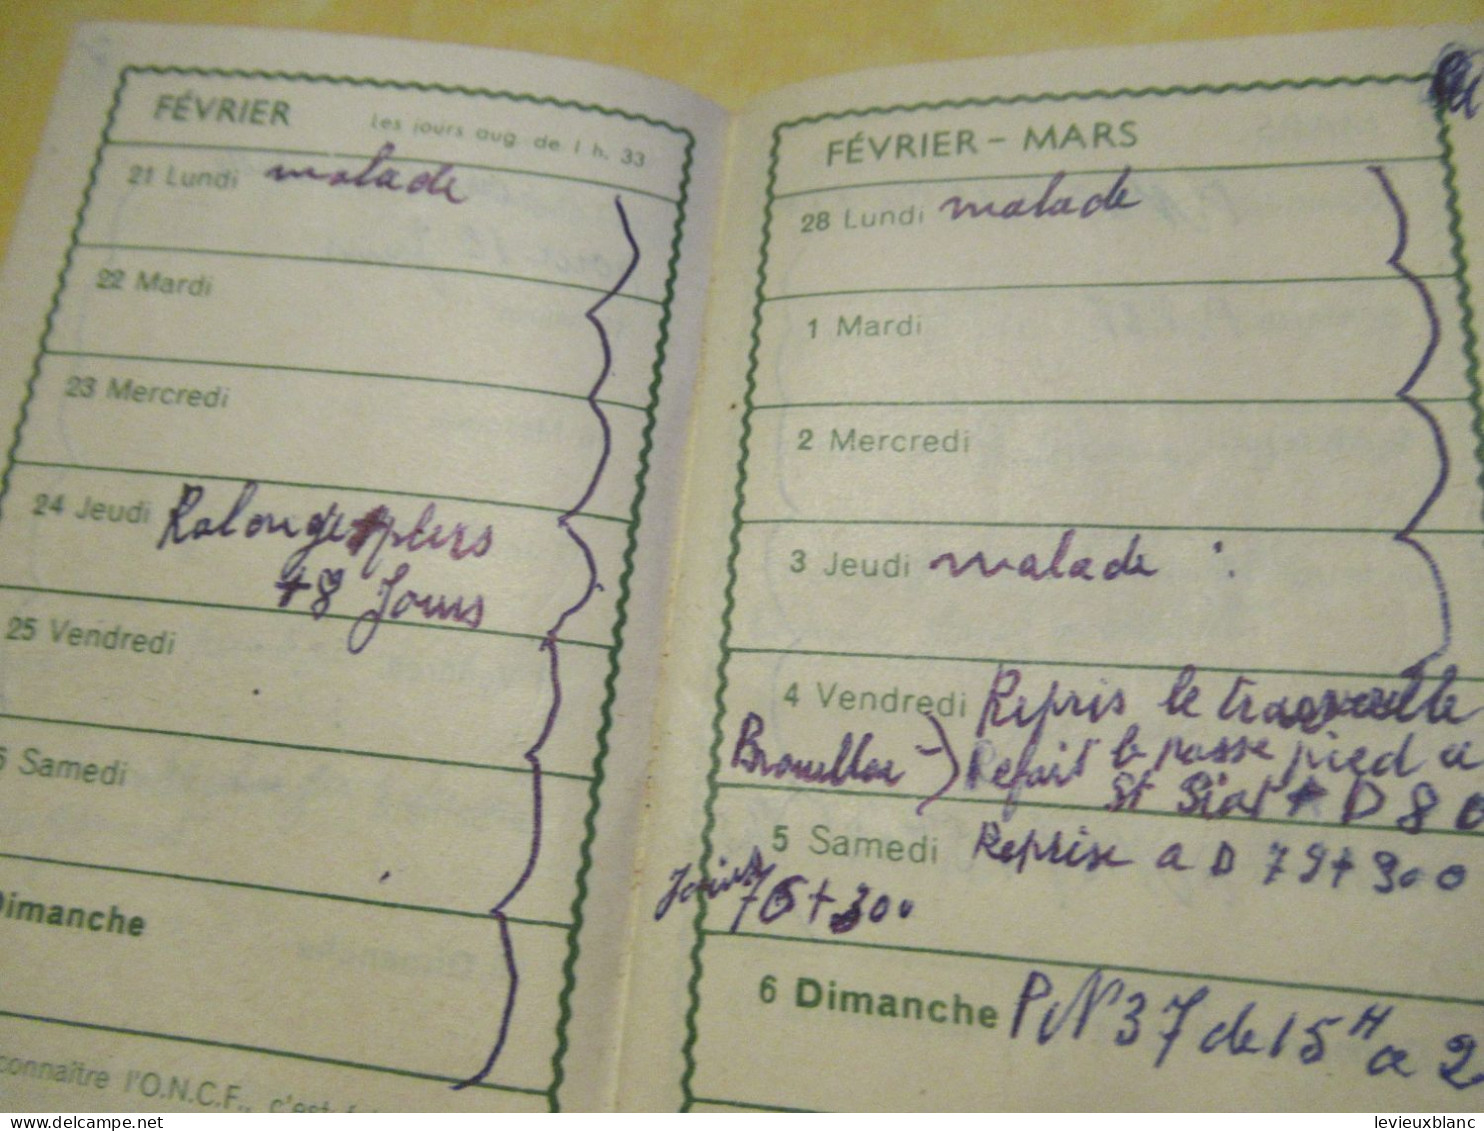 FÉVRIER Les jours aug. de 1 h. 33
21 Lundi malade
22 Mardi
23 Mercredi
24 Jeudi Ralonge plus
+8 Jours
25 Vendredi
6 Samedi
Dimanche
connaître l'O.N.C.F., c'est
FÉVRIER - MARS
28 Lundi malade
1 Mardi
2 Mercredi
3 Jeudi malade :
4 Vendredi Repris le
Refait le passe pied a
St D 80
5 Samedi Reprise a D 79+300
76+300
6 Dimanche PN 37 de 15H a 2
www.delcampe.net
levieuxblanc